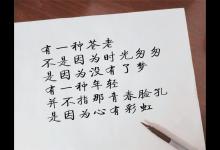 有一种苍老
不是因为时光匆匆
是因为没有了梦
有一种年轻
并不指那青春脸孔
是因为心有彩虹